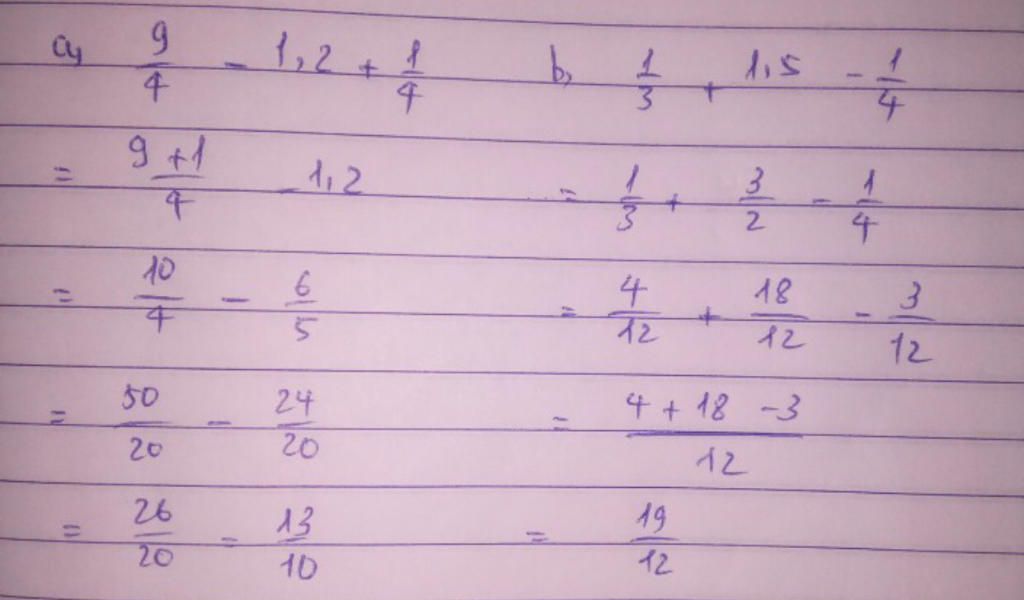 a, 9/4 - 1,2 + 1/4
= (9 + 1)/4 - 1,2
= 10/4 - 6/5
= 50/20 - 24/20
= 26/20 = 13/10
b, 1/3 + 1,5 - 1/4
= 1/3 + 3/2 - 1/4
= 4/12 + 18/12 - 3/12
= (4 + 18 - 3)/12
= 19/12